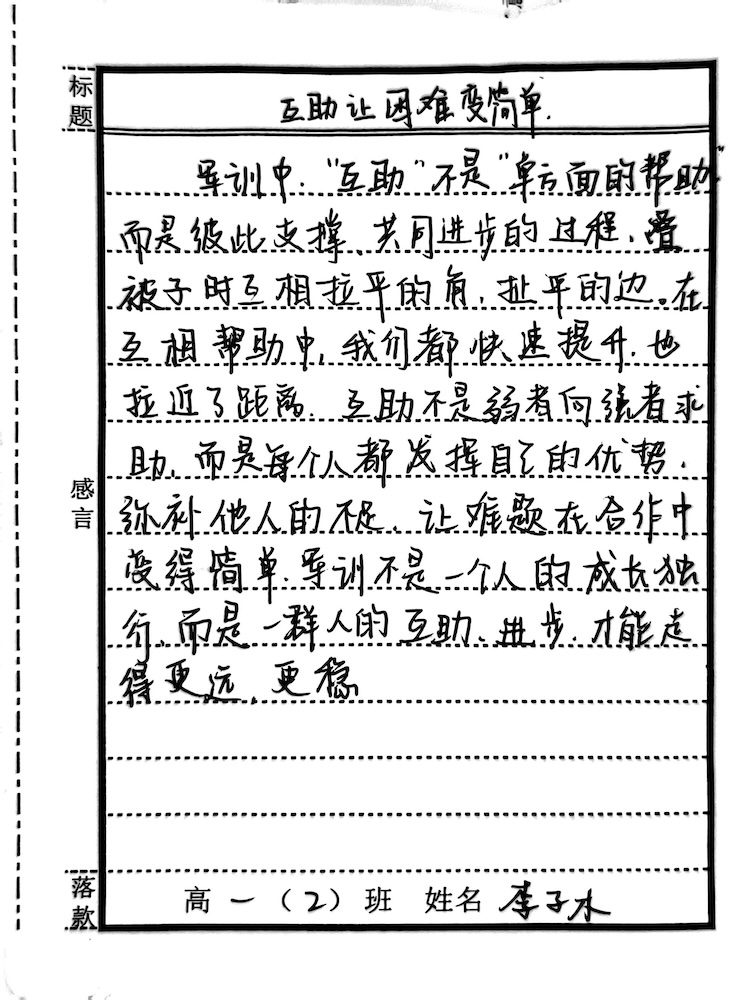 标题
互助让困难变简单.
军训中,“互助”不是“单方面的帮助”
而是彼此支撑、共同进步的过程,叠
被子时互相拉平的角,扯平的边。在
互相帮助中,我们都快速提升,也
拉近了距离. 互助不是弱者向强者求
助,而是每个人都发挥自己的优势,
弥补他人的不足,让难题在合作中
变得简单.军训不是一个人的成长独
行,而是一群人的互助、进步,才能走
得更远,更稳
感言
落款
高一(2)班 姓名 李子木